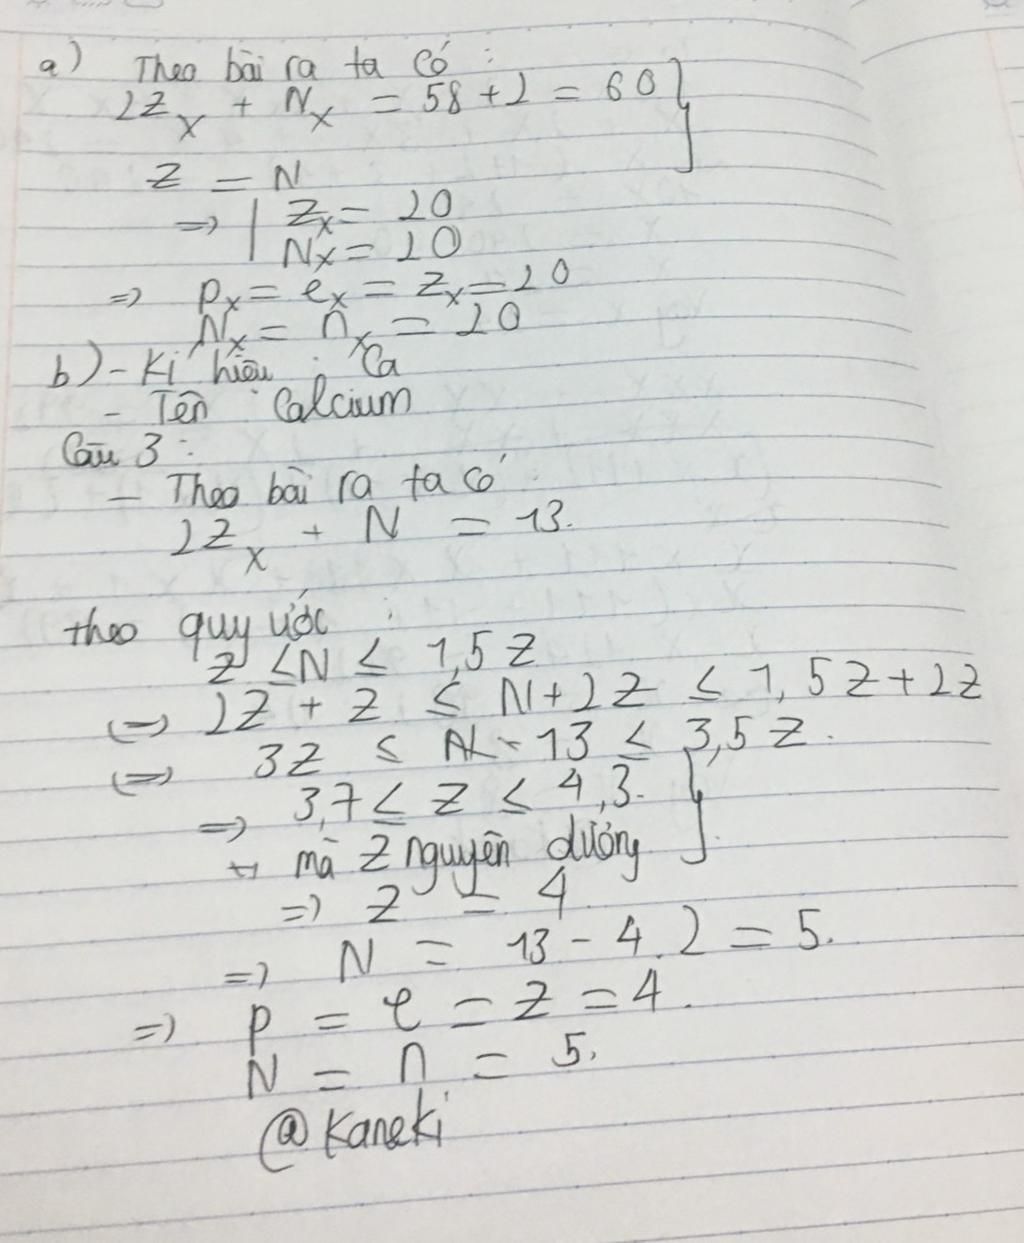 a) Theo bài ra ta có :
2Z_X + N_X = 58 + 2 = 60 }
Z = N
=> | Z_X = 20
N_X = 20
=> P_X = e_X = Z_X = 20
N_X = n_X = 20
b) - Kí hiệu : Ca
- Tên : Calcium
Câu 3 :
- Theo bài ra ta có :
2Z_X + N = 13.
theo quy ước :
Z ≤ N ≤ 1,5 Z
(=) 2Z + Z ≤ N + 2Z ≤ 1,5Z + 2Z
(=) 3Z ≤ 13 ≤ 3,5 Z.
=> 3,7 ≤ Z ≤ 4,3. }
mà Z nguyên dương
=> Z = 4
=> N = 13 - 4.2 = 5.
=> P = e = Z = 4.
N = n = 5.
@Kaneki